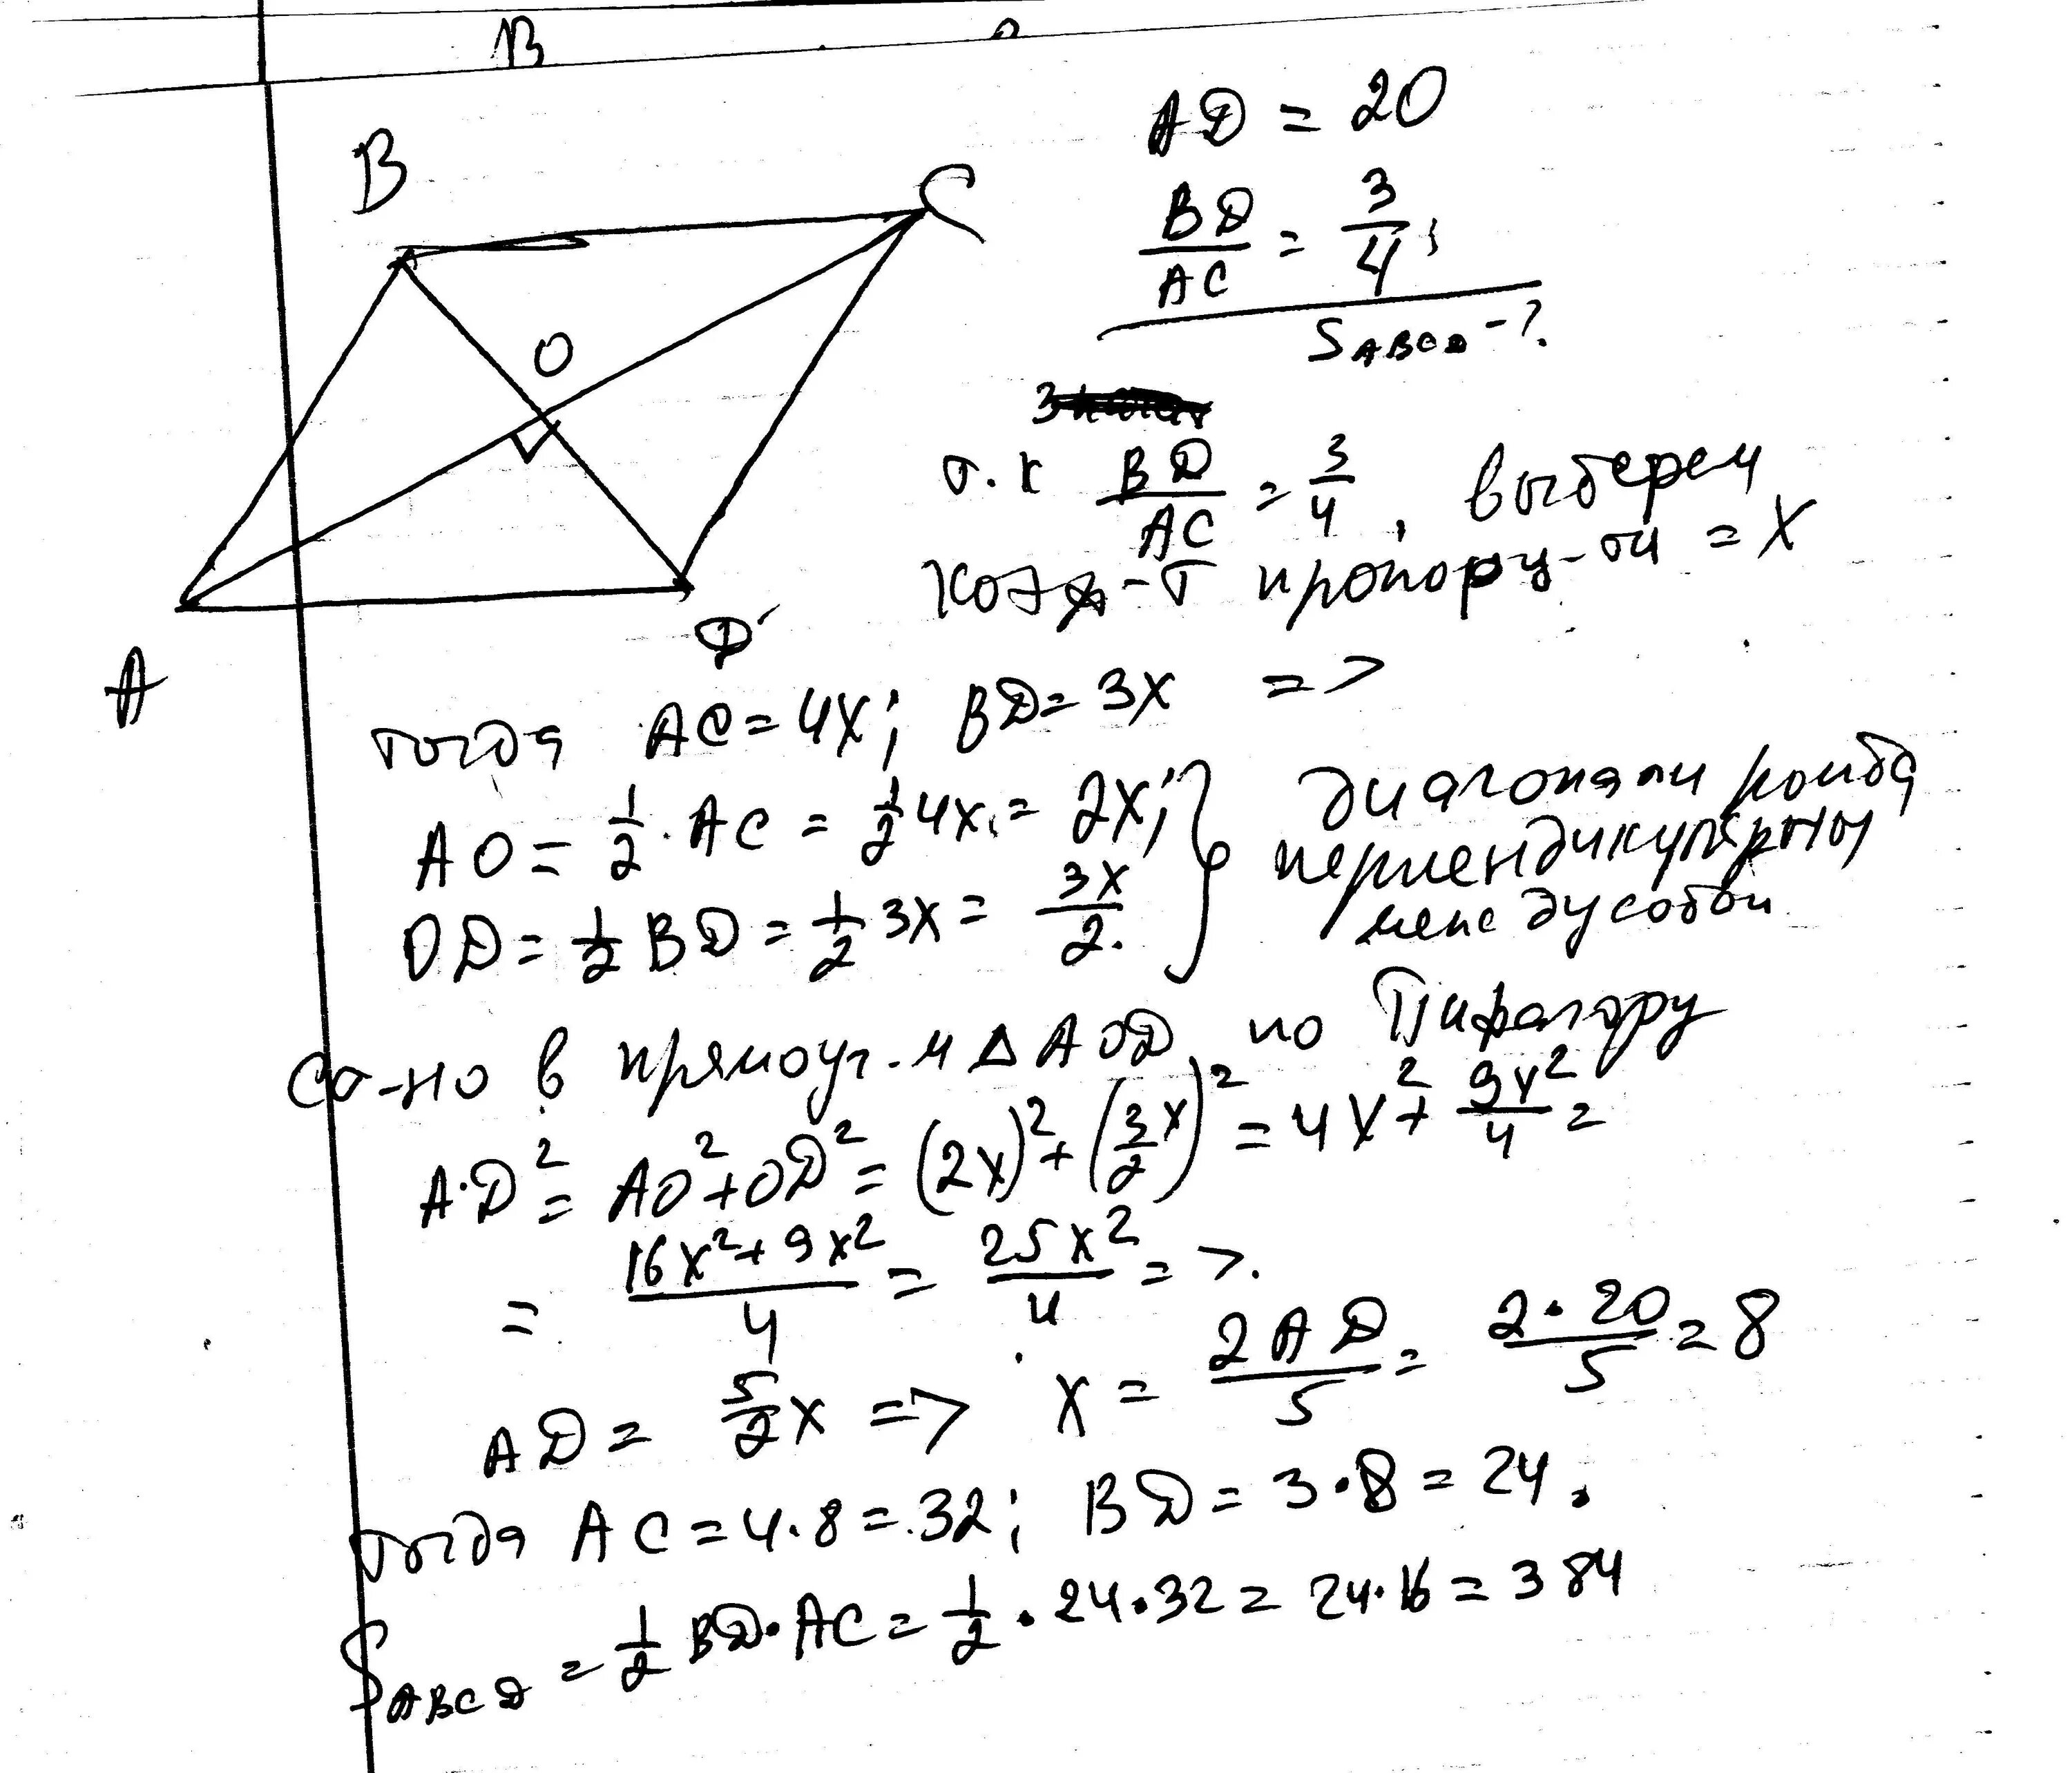 B
B
C
O
A
D
AD = 20
BD/AC = 3/4;
S ABCD - ?
т.к BD/AC = 3/4, выберем
коэф-т пропорц-ти = x
тогда AC = 4x; BD = 3x =>
AO = 1/2 · AC = 1/2 4x = 2x;
OD = 1/2 BD = 1/2 3x = 3x/2.
} диагонали ромба
перпендикулярны
между собой
со-но в прямоуг-м Δ AOD по Пифагору
AD² = AO² + OD² = (2x)² + (3/2 x)² = 4x² + 9x²/4 =
= 16x² + 9x²/4 = 25x²/4 =>.
AD = 5/2 x => x = 2AD/5 = 2·20/5 = 8
тогда AC = 4·8 = 32; BD = 3·8 = 24.
S ABCD = 1/2 BD·AC = 1/2 · 24·32 = 24·16 = 384